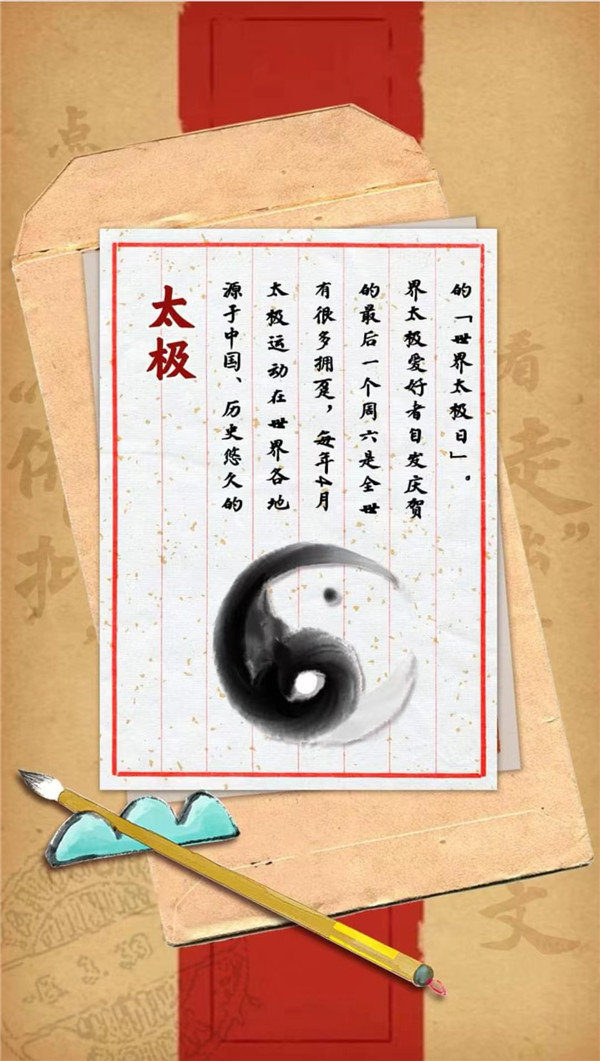 太极
源于中国、历史悠久的
太极运动在世界各地
有很多拥趸，每年4月
的最后一个周六是全世
界太极爱好者自发庆贺
的「世界太极日」。
点
看
走
文